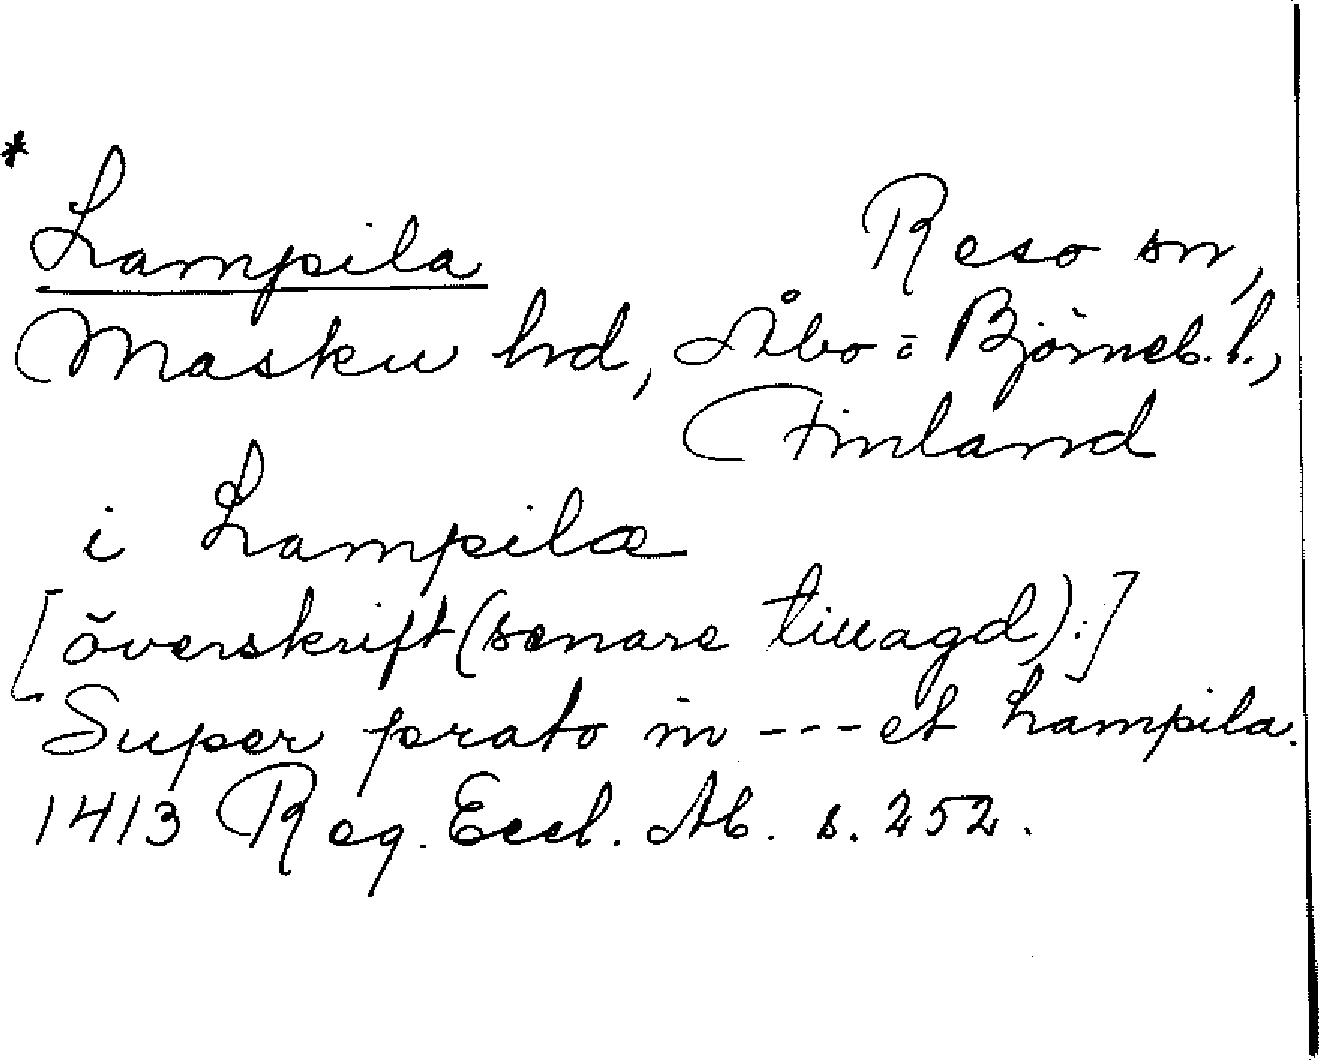 * Lampila Reso sn,
Masku hd, Åbo-Björneb. l.,
Finland
i Lampilæ
[överskrift (senare tillagd):]
Super prato in --- et Lampila.
1413 Reg. Eccl. Ab. s. 252.